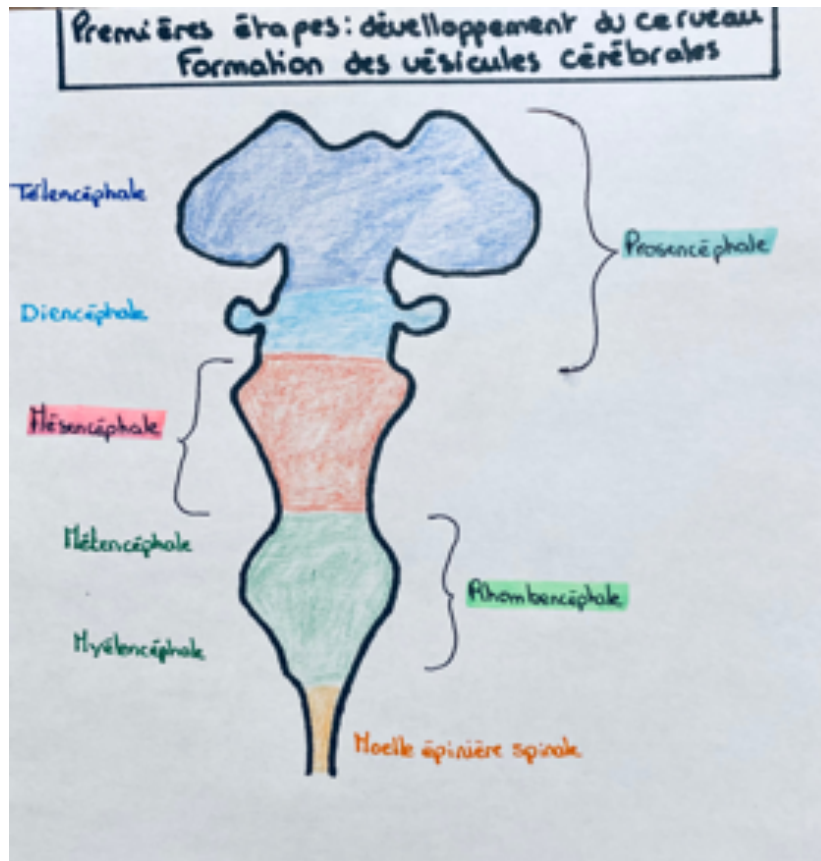 Premières étapes: dévelloppement du cerveau
Formation des vésicules cérébrales
Télencéphale
Prosencéphale
Diencéphale
Mésencéphale
Métencéphale
Rhombencéphale
Myélencéphale
Moelle épinière spinale